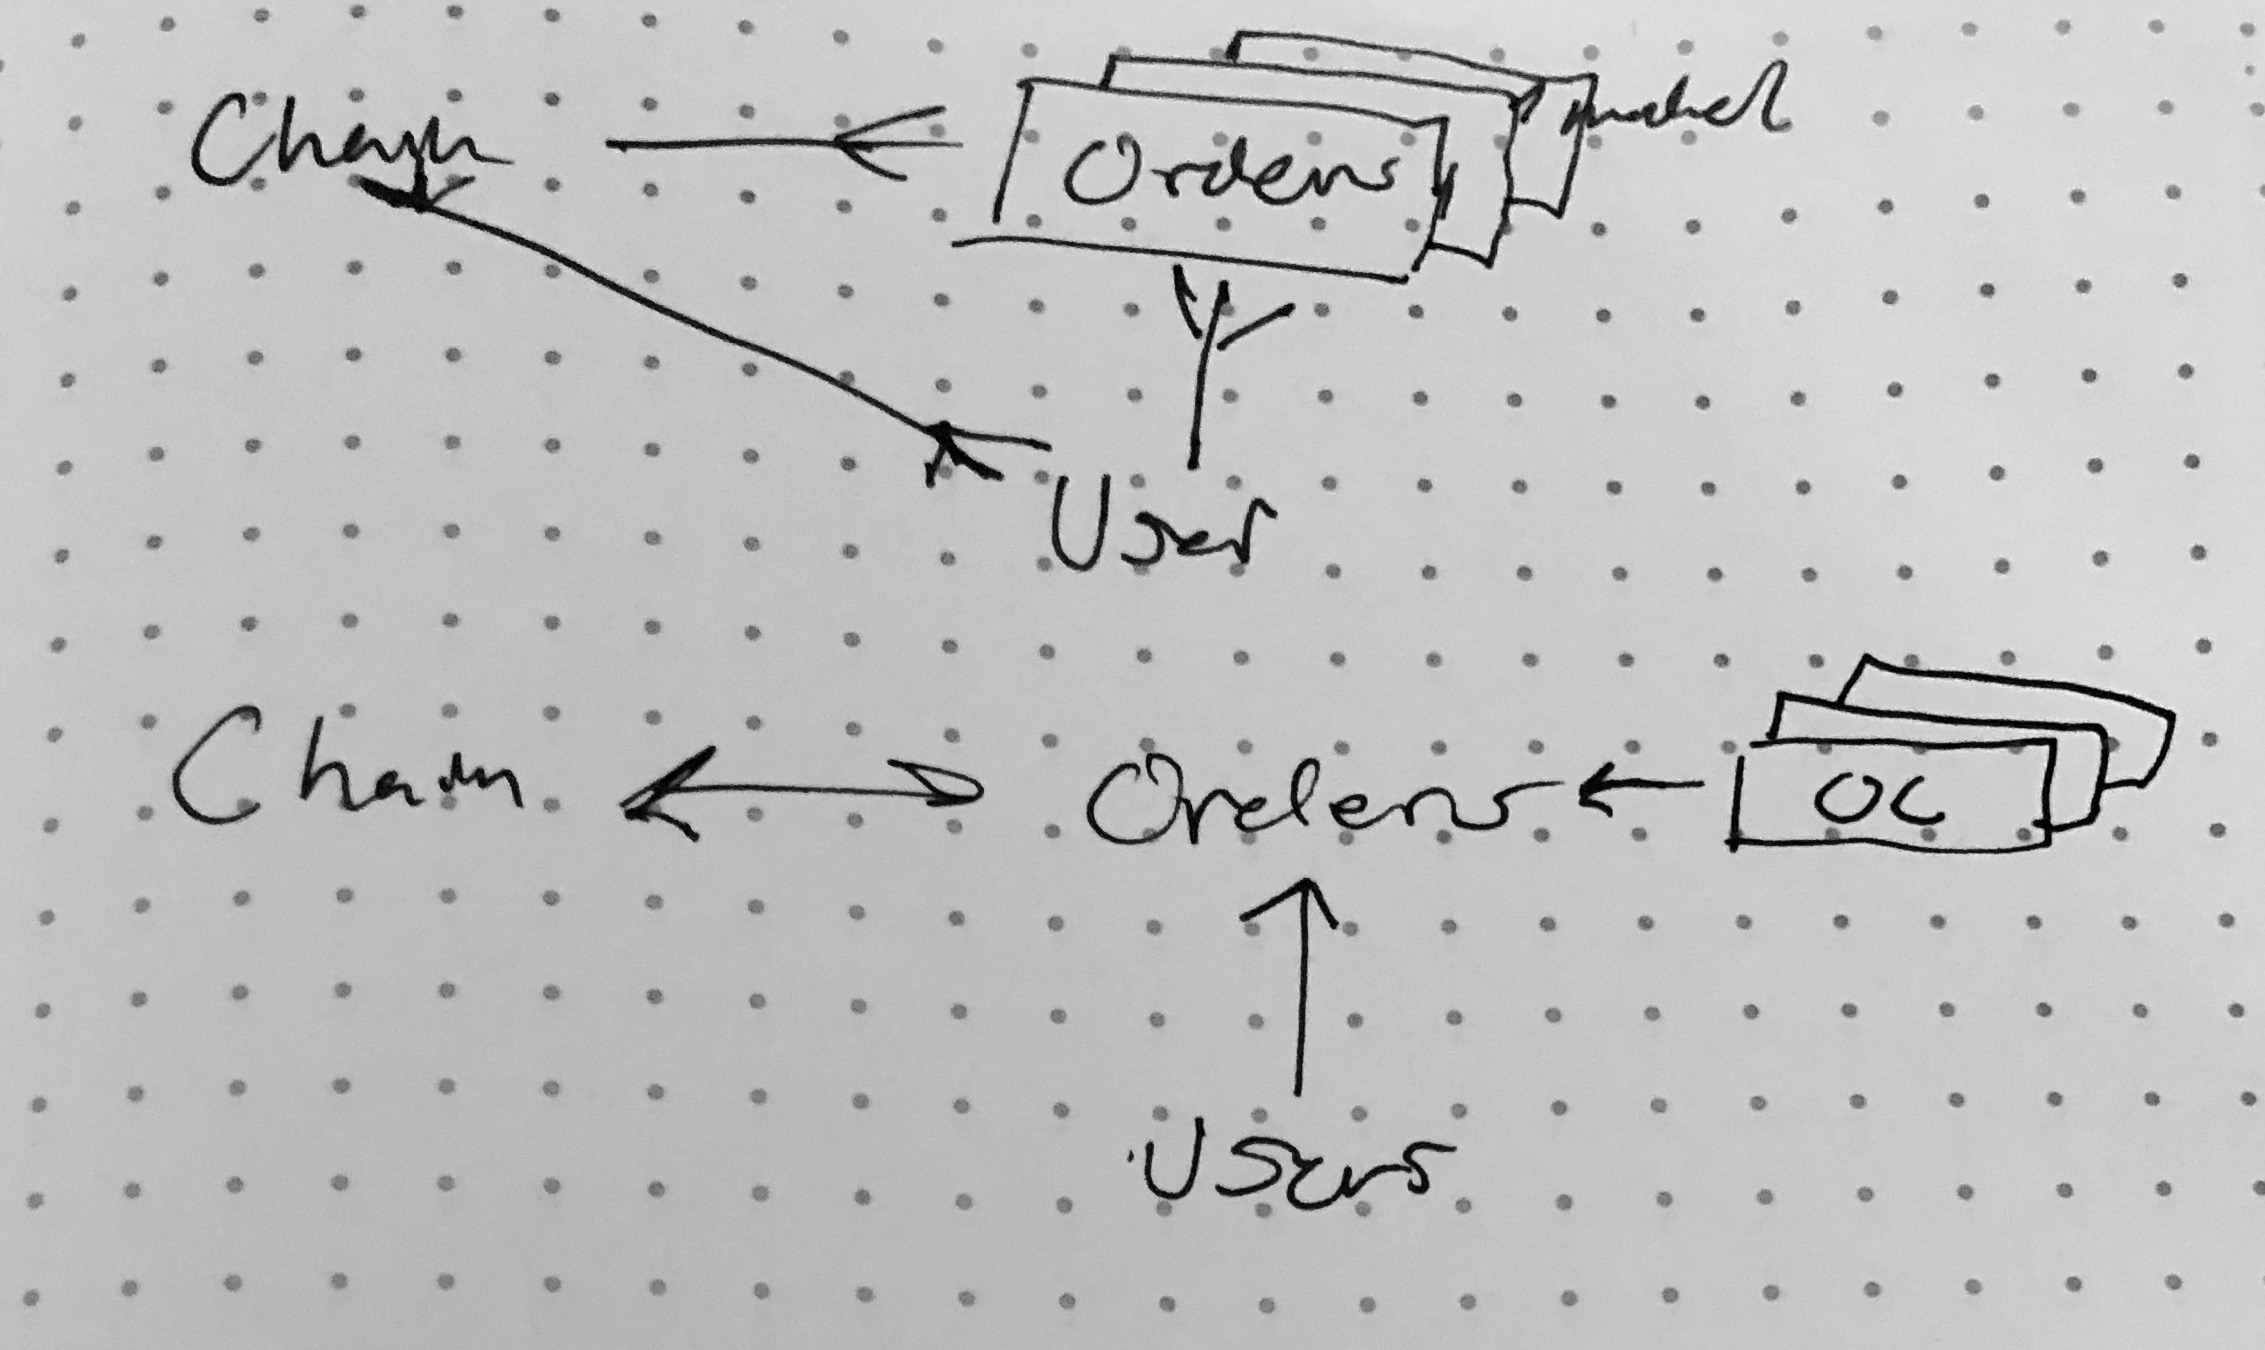 Chain
Orders
User
Chain
Orders
OC
Users